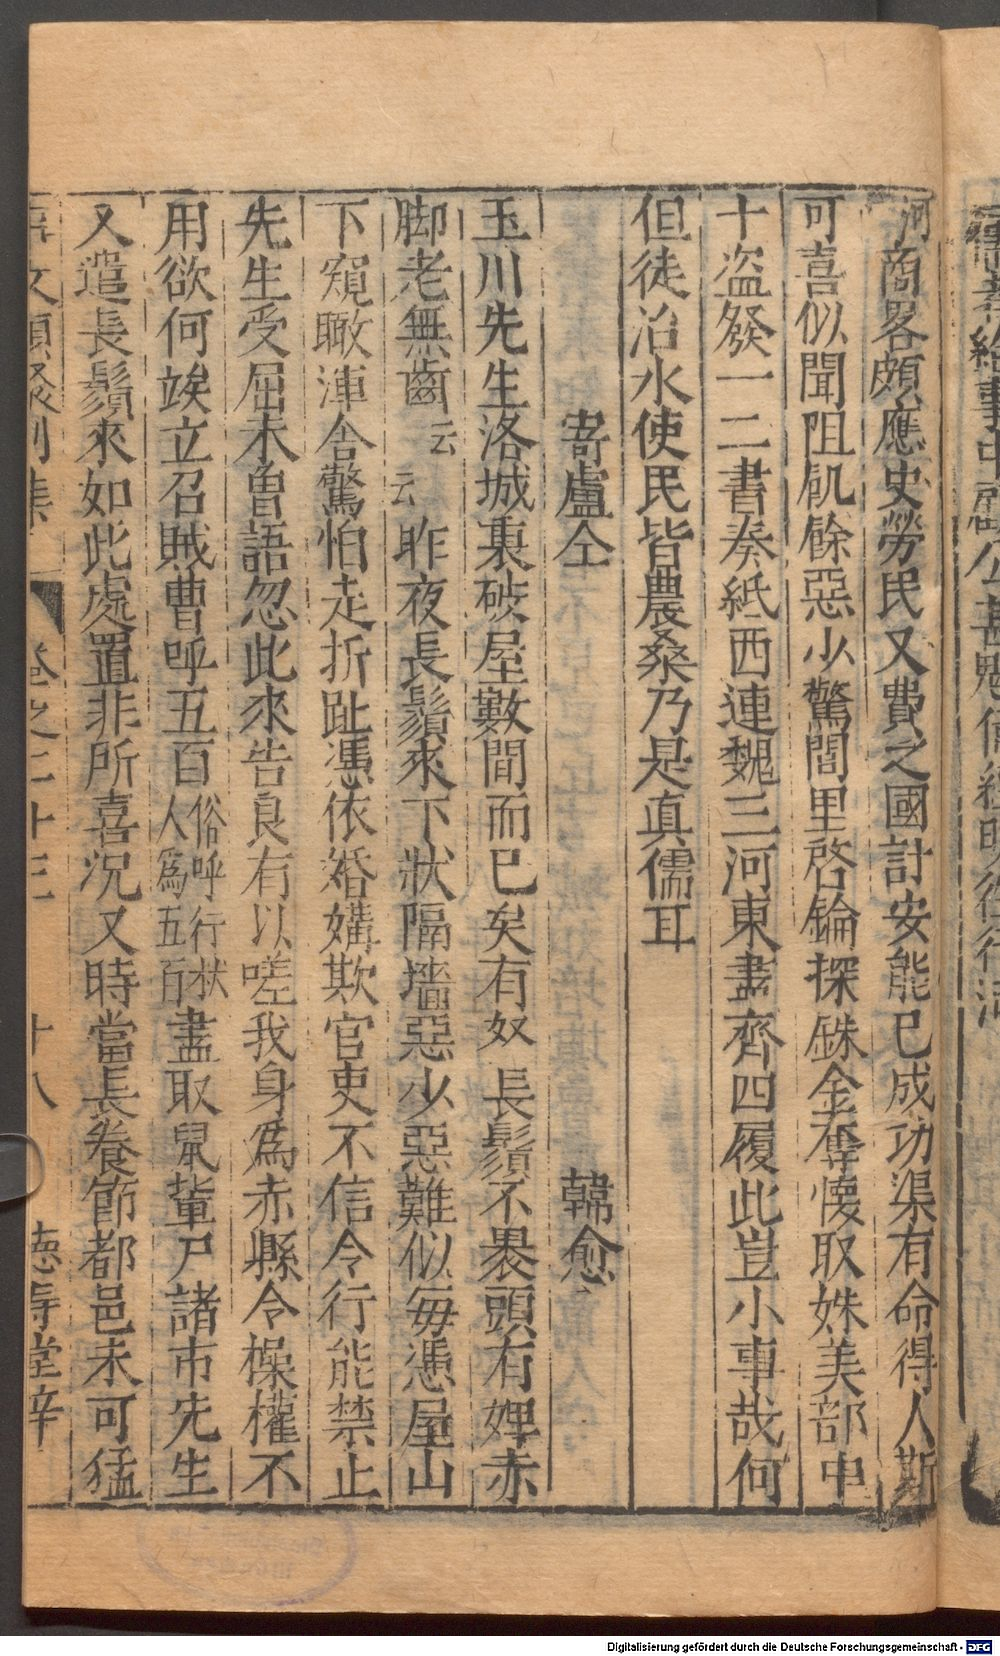 河商畧頗應史勞民又費之國計安能已成功渠有命得人斯
可喜似聞阻飢餘惡少驚閭里啓鑰探銖金奪懷取姝美部中
十盜發一二書奏紙西連魏三河東盡齊四履此豈小事哉何
但徒治水使民皆農桑乃是真儒耳
寄盧仝 韓愈
玉川先生洛城裏破屋數間而已矣有奴長鬚不裹頭有婢赤
脚老無齒云云昨夜長鬚來下狀隔墻惡少惡難似每憑屋山
下窺瞰渾舍驚怕走折趾憑依婚媾欺官吏不信令行能禁止
先生受屈未曾語忽此來告良有以嗟我身為赤縣令操權不
用欲何竢立召賊曹呼五百俗呼行杖人為五百盡取鼠輩尸諸市先生
又遣長鬚來如此處置非所喜況又時當長養節都邑未可猛
事文類聚別集 卷之二十三 十八 德壽堂梓
Digitalisierung gefördert durch die Deutsche Forschungsgemeinschaft - DFG